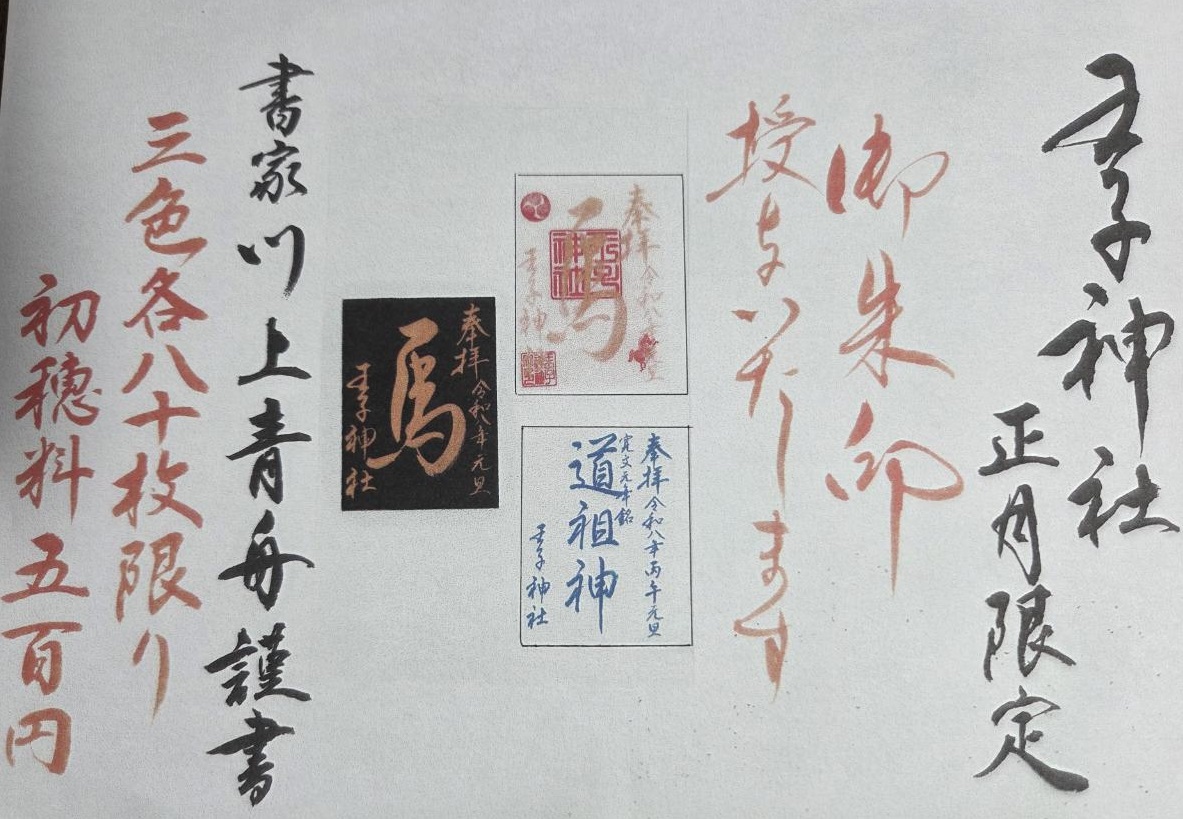 王子神社
正月限定
御朱印
授与いたします
奉拝 令和八年元旦
馬
王子神社
奉拝 令和八年丙午元旦
寛文元年銘
道祖神
王子神社
奉拝 令和八年元旦
馬
王子神社
書家川上青舟謹書
三色各八十枚限り
初穂料五百円